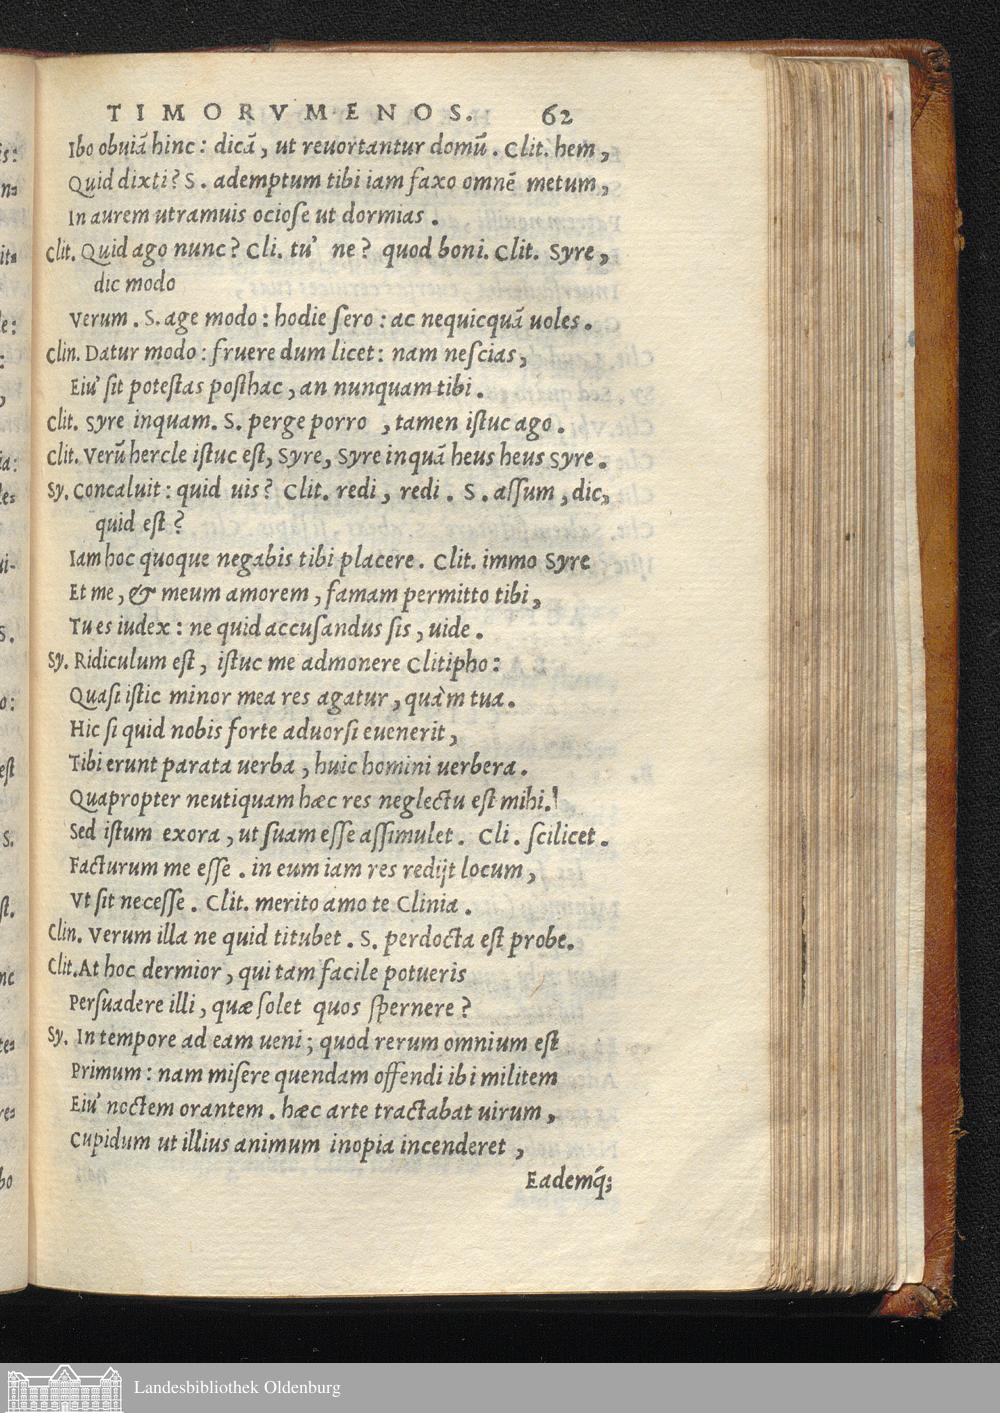 TIMORVMENOS. 62
Ibo obuiā hinc: dicā, ut reuortantur domū. Clit. hem,
Quid dixti? S. ademptum tibi iam faxo omnē metum,
In aurem utramuis ociose ut dormias.
Clit. Quid ago nunc? Cli. tu' ne? quod boni. Clit. Syre,
dic modo
Verum. S. age modo: hodie ſero: ac nequicquā uoles.
Clin. Datur modo: fruere dum licet: nam neſcias,
Eiu' ſit poteſtas poſthac, an nunquam tibi.
Clit. Syre inquam. S. perge porro, tamen iſtuc ago.
Clit. Verū hercle iſtuc eſt, Syre, Syre inquā heus heus Syre.
Sy. Concaluit: quid uis? Clit. redi, redi. S. aſſum, dic,
quid eſt?
Iam hoc quoque negabis tibi placere. Clit. immo Syre
Et me, & meum amorem, famam permitto tibi,
Tu es iudex: ne quid accuſandus ſis, uide.
Sy. Ridiculum eſt, iſtuc me admonere Clitipho:
Quaſi iſtic minor mea res agatur, quàm tua.
Hic ſi quid nobis forte aduorſi euenerit,
Tibi erunt parata uerba, huic homini uerbera.
Quapropter neutiquam hæc res neglectu eſt mihi.
Sed iſtum exora, ut ſuam eſſe aſſimulet. Cli. ſcilicet.
Facturum me eſſe. in eum iam res redijt locum,
Vt ſit neceſſe. Clit. merito amo te Clinia.
Clin. Verum illa ne quid titubet. S. perdocta eſt probe.
Clit. At hoc dermior, qui tam facile potueris
Perſuadere illi, quæ ſolet quos ſpernere?
Sy. In tempore ad eam ueni; quod rerum omnium eſt
Primum: nam miſere quendam offendi ibi militem
Eiu' noctem orantem. hæc arte tractabat uirum,
Cupidum ut illius animum inopia incenderet,
Eademq́;
Landesbibliothek Oldenburg